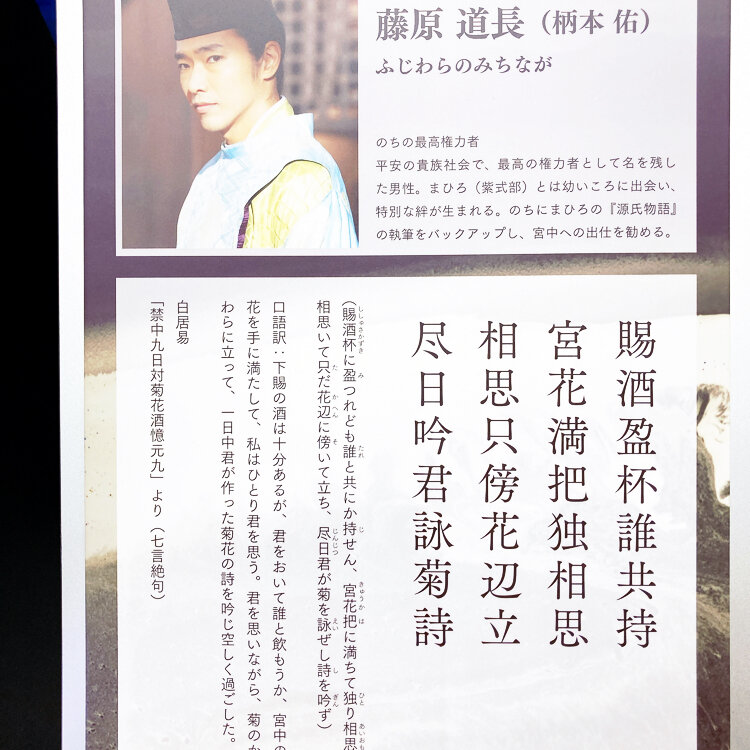 藤原 道長（柄本 佑）
ふじわらのみちなが
のちの最高権力者
平安の貴族社会で、最高の権力者として名を残し
た男性。まひろ（紫式部）とは幼いころに出会い、
特別な絆が生まれる。のちにまひろの『源氏物語』
の執筆をバックアップし、宮中への出仕を勧める。
賜酒盈杯誰共持
宮花満把独相思
相思只傍花辺立
尽日吟君詠菊詩
（賜酒杯に盈つれども誰と共にか持せん、宮花把に満ちて独り相思
相思いて只だ花辺に傍いて立ち、尽日君が菊を詠ぜし詩を吟ず）
口語訳：下賜の酒は十分あるが、君をおいて誰と飲もうか、宮中の
花を手に満たして、私はひとり君を思う。君を思いながら、菊のか
わらに立って、一日中君が作った菊花の詩を吟じ空しく過ごした。
白居易
「禁中九日対菊花酒憶元九」より（七言絶句）